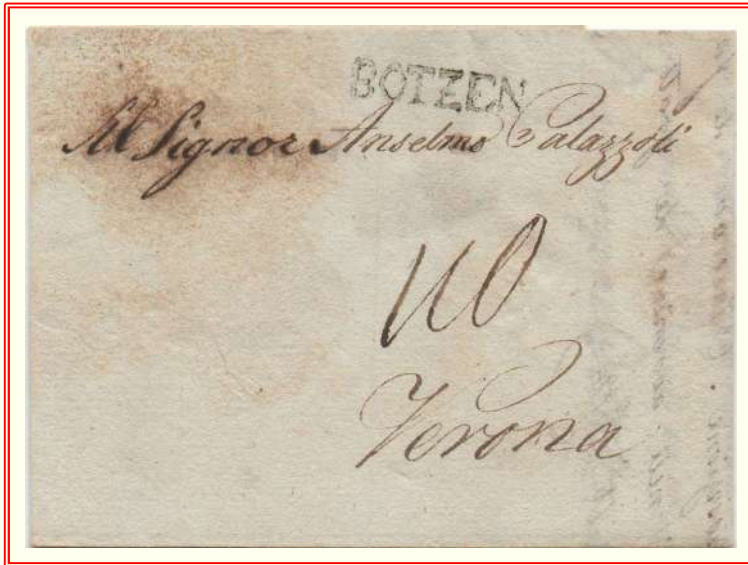 BOTZEN
Al Signor Anselmo Palazzoli
Verona